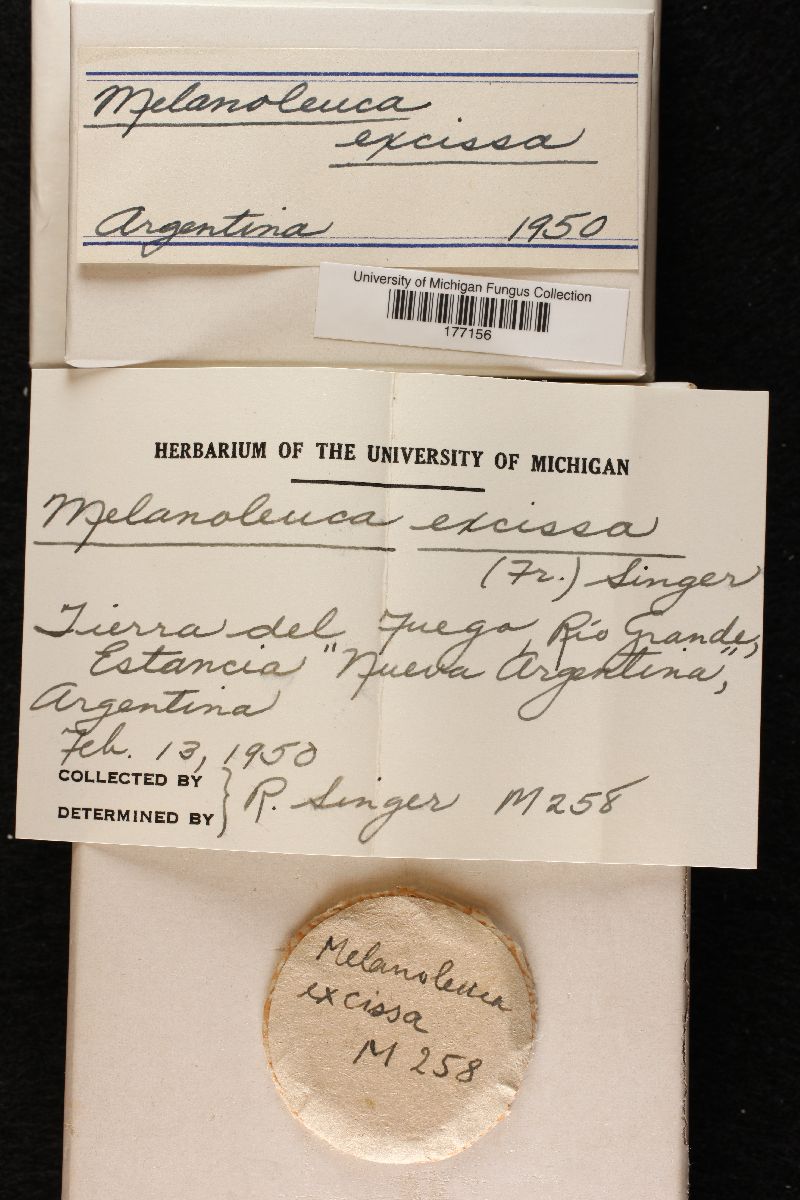 Melanoleuca
excissa
Argentina 1950
University of Michigan Fungus Collection
177156
HERBARIUM OF THE UNIVERSITY OF MICHIGAN
Melanoleuca excissa
(Fr.) Singer
Tierra del Fuego, Río Grande,
Estancia "Nueva Argentina",
Argentina
Feb. 13, 1950
COLLECTED BY
DETERMINED BY } R. Singer M258
Melanoleuca
excissa
M 258